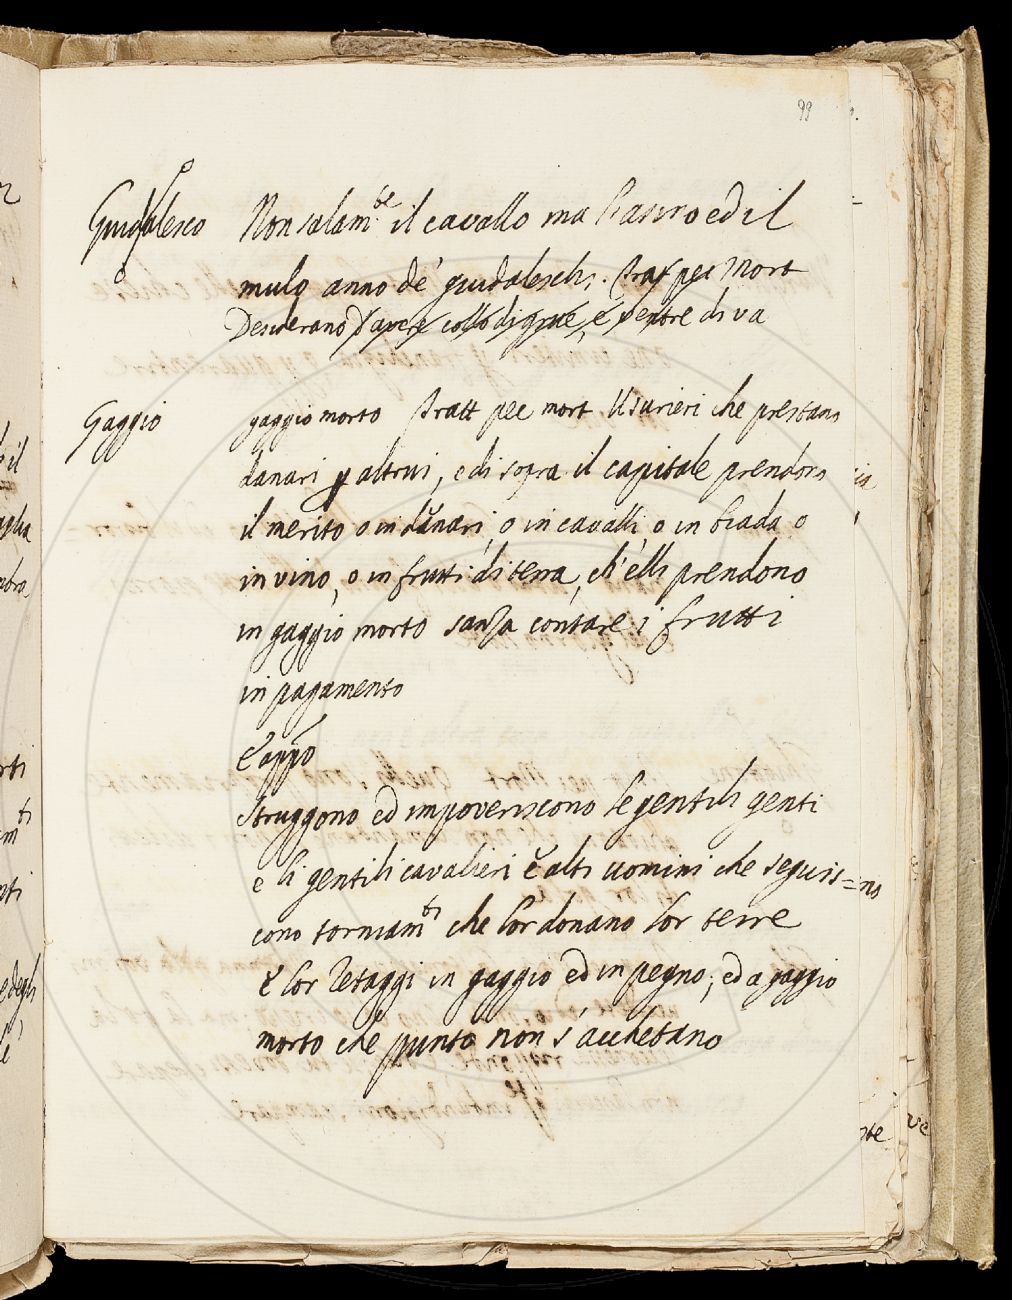 99
Guidalesco Non solam.te il cavallo ma l'asino ed il
mulo anno de' guidaleschi. Tratt pec Mort
Desiderano d'avere collo di grue, e ventre di va
Gaggio gaggio morto Tratt pec mort Usurieri che prestano
danari p altrui, e di sopra il capitale prendono
il merito o in danari, o in cavalli, o in biada o
in vino, o in frutti di terra, ch'elli prendono
in gaggio morto sanza contare i frutti
in pagamento
E appo
struggono ed impoveriscono le gentili genti
e li gentili cavalieri e alti uomini che seguis=no
cono torniam.ti che lor donano lor terre
e lor retaggi in gaggio ed in pegno; ed a gaggio
morto che punto non s'acchetano